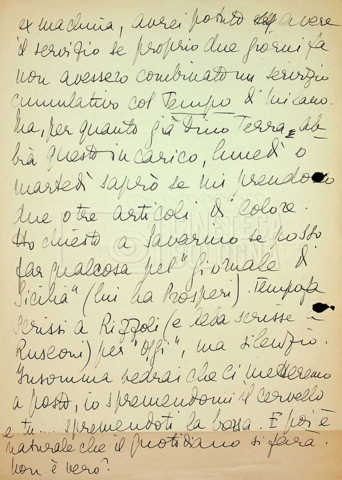 ex machina, avrei potuto avere
il servizio se proprio due giorni fa
non avessero combinato un servizio
cumulativo col Tempo di Milano.
Ma, per quanto già Dino Terra, ab-
bia questo incarico, lunedì o
martedì saprò se mi prendono
due o tre articoli di colore.
Ho chiesto a Savarino se posso
far qualcosa pel "Giornale di
Sicilia" (lui ha Prosperi). Tempo fa
scrissi a Rizzoli (e Alba scrisse a
Rusconi) per "Oggi", ma silenzio.
Insomma vedrai che ci metteremo
a posto, io spremendomi il cervello
e tu.... spremendoti la borsa. E poi è
naturale che il quotidiano si farà.
Non è vero?